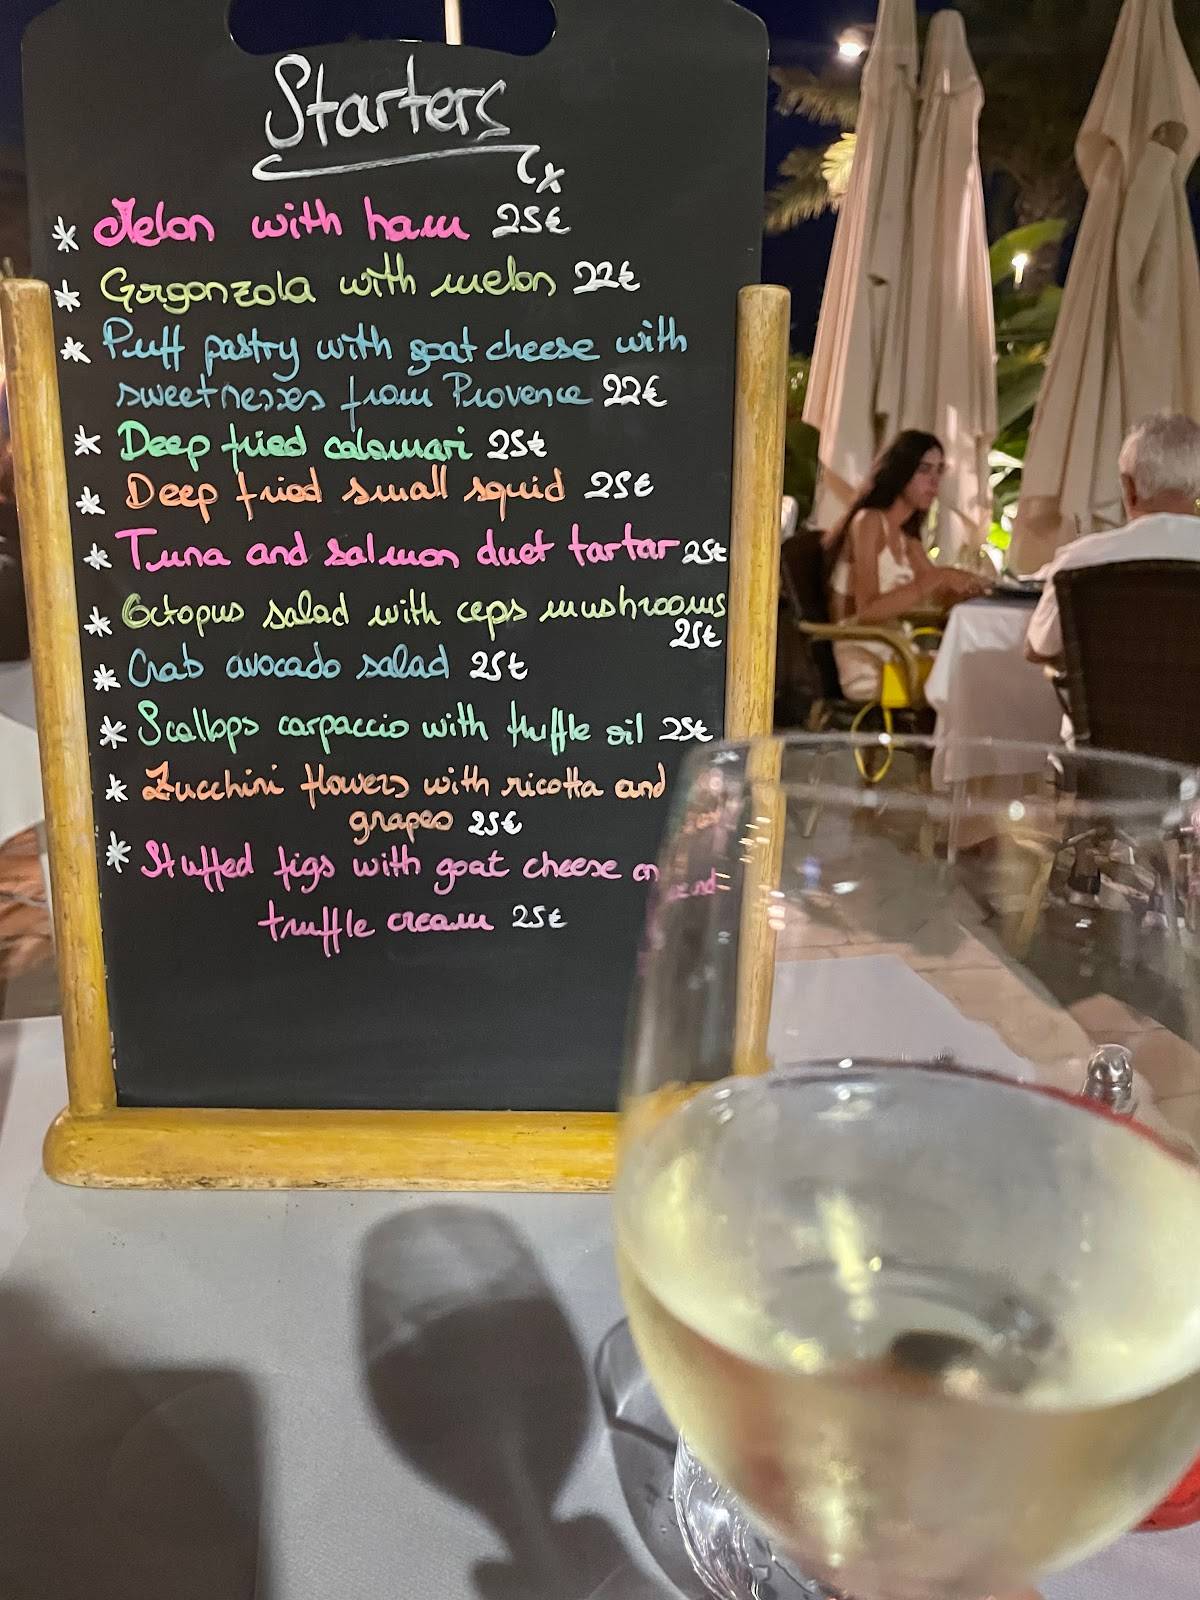 Starters
* Melon with ham 25€
* Gorgonzola with melon 22€
* Puff pastry with goat cheese with
sweetnesses from Provence 22€
* Deep fried calamari 25€
* Deep fried small squid 25€
* Tuna and salmon duet tartar 25€
* Octopus salad with ceps mushrooms
25€
* Crab avocado salad 25€
* Scallops carpaccio with truffle oil 25€
* Zucchini flowers with ricotta and
grapes 25€
* Stuffed figs with goat cheese and
truffle cream 25€